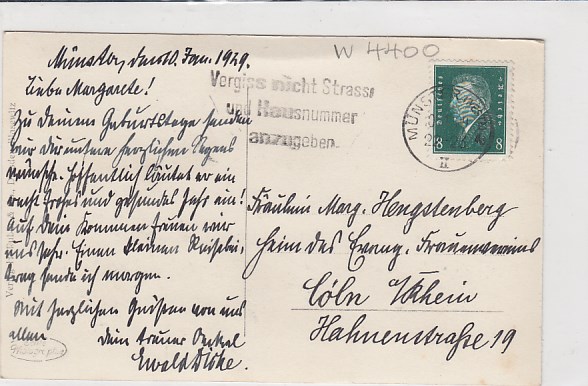 W 4400
Münster, den 10. Jan. 1929.
Liebe Margarete!
Zu Deinem Geburtstage senden
wir Dir unsere herzlichen Segens
wünsche. Hoffentlich läutet er ein
recht frohes und gesundes Jahr ein!
Auf Dein Kommen freuen wir
uns sehr. Einen kleinen Reisebei-
trag sende ich morgen.
Mit herzlichen Grüßen von uns
allen Dein treuer Onkel
Ewald
Vergiss nicht Strasse
und Hausnummer
anzugeben.
MÜNST
Deutsches Reich
8 8
Fräulein Marg. Hengstenberg
Heim des Evang. Frauenvereins
Cöln a/Rhein
Hahnenstraße 19